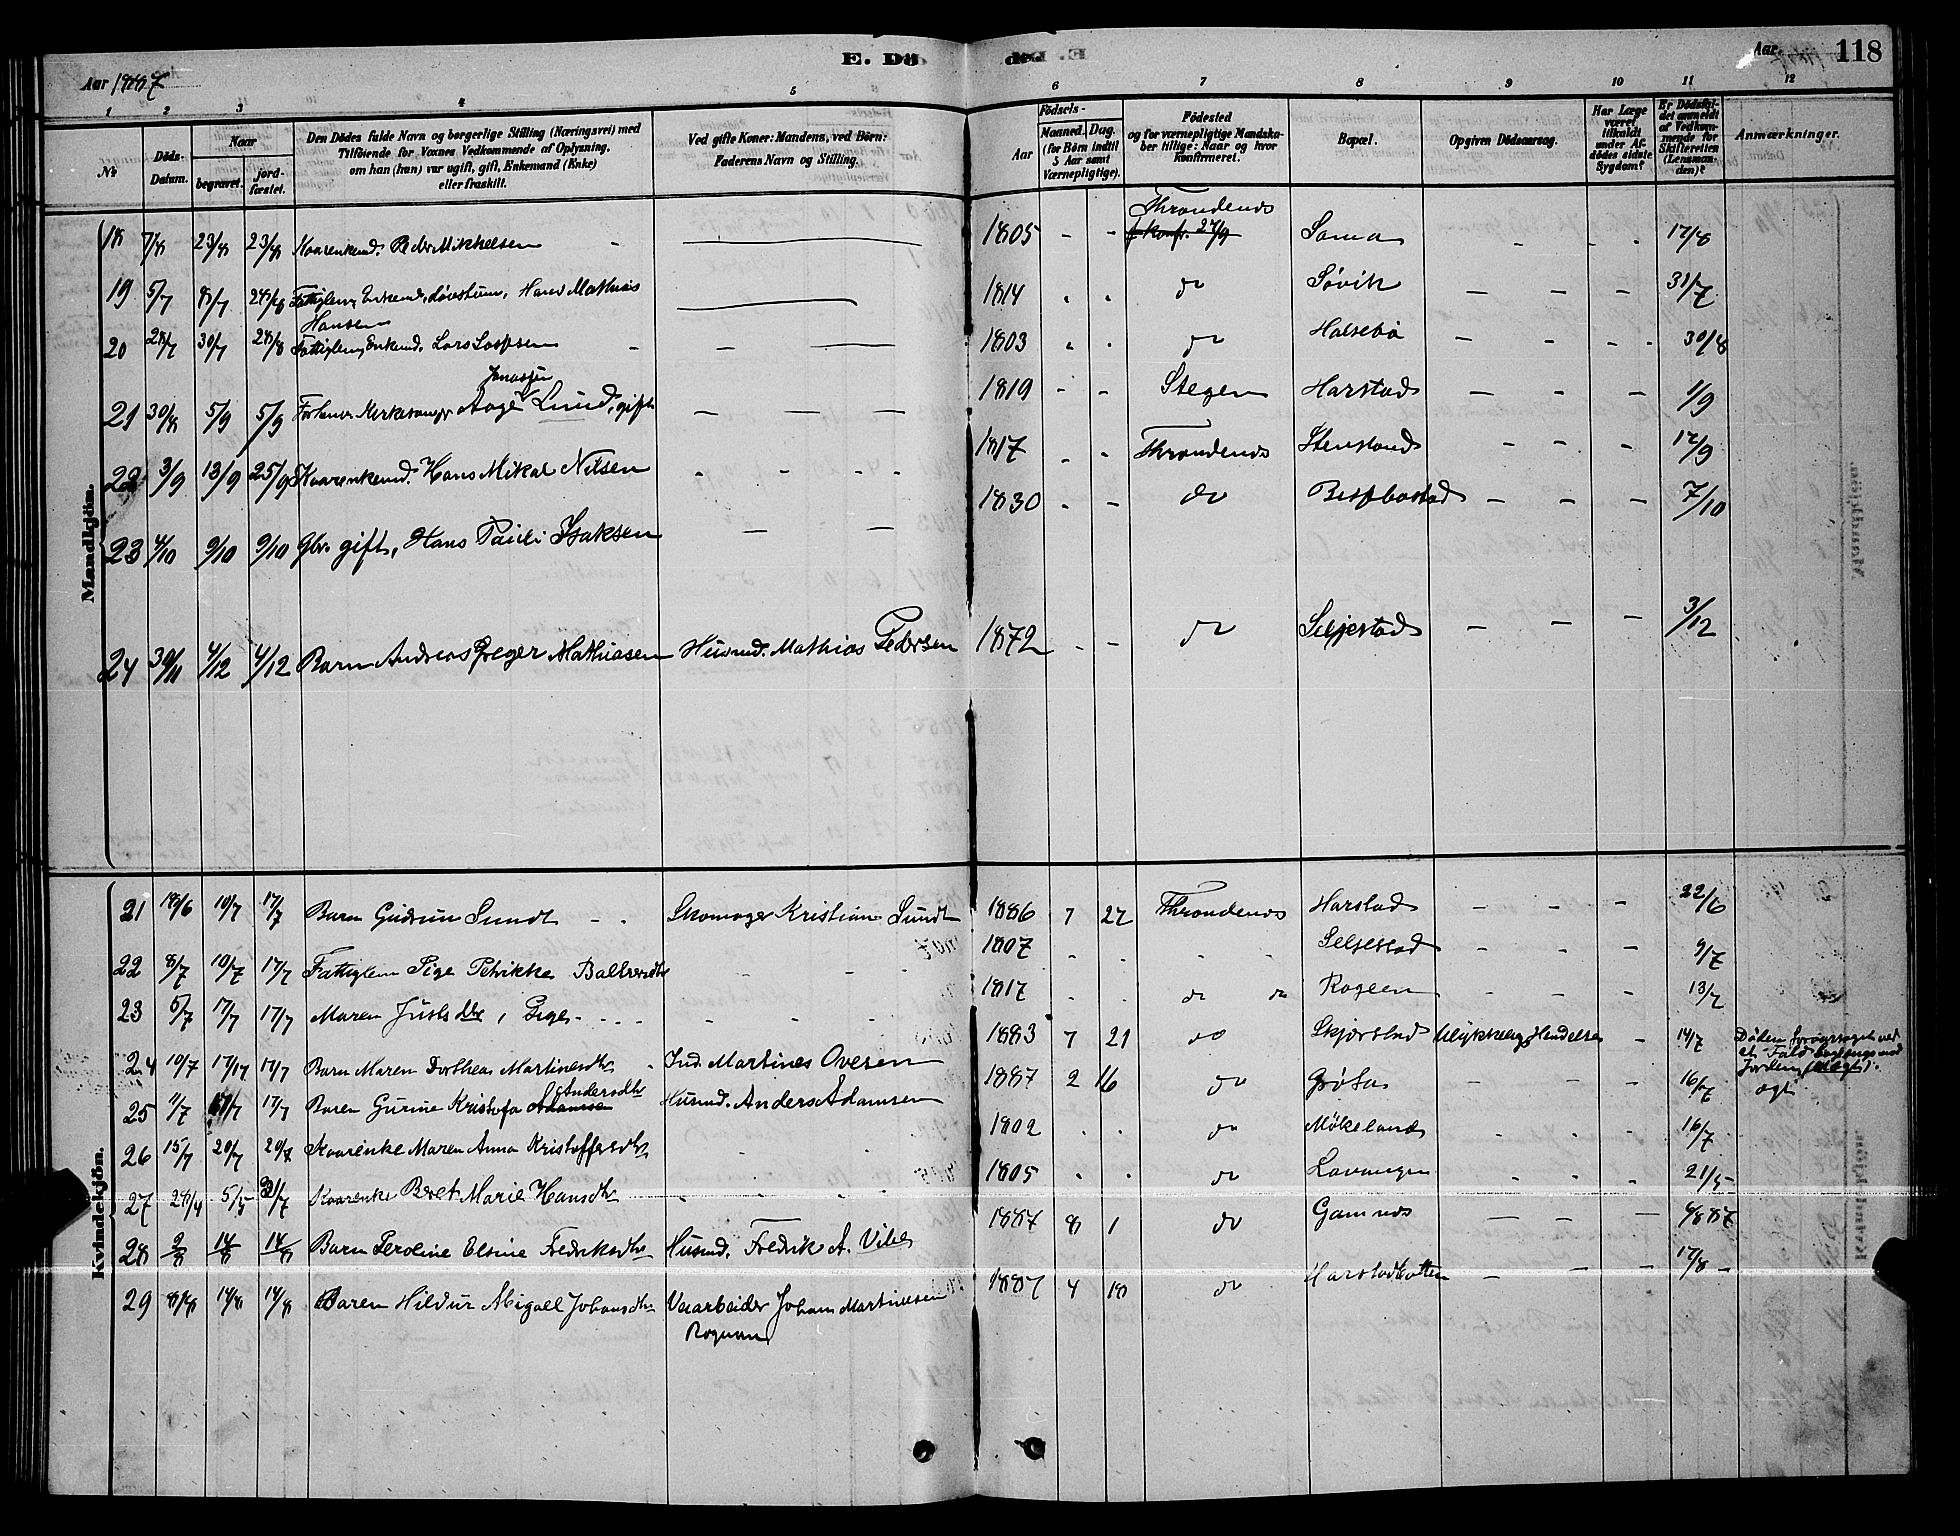 E. Dö de.
Aar 1887
Aar. 118
1 2 3 4 5 6 7 8 9 10 11 12
No
Döds-Datum.
Naar
begravet.
jord-fæstet.
Den Dödes fulde Navn og borgerlige Stilling (Næringsvei) med
Tilföiende for Voxnes Vedkommende af Oplysning,
om han (hun) var ugift, gift, Enkemand (Enke)
eller fraskilt.
Ved gifte Koner: Mandens, ved Börn:
Faderens Navn og Stilling.
Födsels-
Aar
Maaned. Dag.
(for Börn indtil
5 Aar samt
Værnepligtige).
Födested
og for værnepligtige Mandska-
ber tillige: Naar og hvor
konfirmeret.
Bopæl.
Opgiven Dödsaarsag.
Har Læge
været
tilkaldt
under Af-
dödes sidste
Sygdom?
Er Dödsfal-
det anmeldt
af Vedkom-
mende for
Skifteretten
(Lensman-
den)?
Anmærkninger.
Mandkjön.
18 7/8 23/8 23/8 Kaarenkemd. Peder Mikkelsen — 1805 - - Throndenes Sama - - - 17/8
19 5/7 8/7 28/8 Fattiglem, Enkemd. Hans Mathias Hansen — 1814 do Søvik - - - 31/7
20 28/7 30/7 28/8 Fattiglem, Enkemd. Lars - - — 1803 do Halsebø - - - 30/8
21 30/8 5/9 5/9 Forhenv. Kirkesanger Aage Jonassen Lund, gift — — — 1819 - - Stegen Harstad - - - 1/9
22 3/9 13/9 25/9 Kaarenkemd. Hans Mikal Nilsen - - - 1817 - - Throndenes Stensland - - - 12/9
23 4/10 9/10 9/10 Gbr. gift, Hans Pauli Isaksen — — 1830 - - do - - - 7/10
24 30/11 4/12 4/12 Barn Andreas Greger Mathiasen Husmd. Mathias Pedersen 1872 - - do Seljestad - - - 3/12
Kvindekjön.
21 18/6 10/7 17/7 Barn Gudrun Sundt - - Skomager Kristian Sundt 1886 7 27 Throndenes Harstad - - - 22/6
22 8/7 10/7 17/7 Fattiglem Pige Petrikke - - - 1807 - - - Seljestad - - - 9/7
23 5/7 17/7 17/7 Maren Justsdtr, Pige - - - 1817 - - do do - - - 13/7
24 10/7 17/7 17/7 Barn Maren Dorthea Martinesdtr - Ind. Martines Ovesen 1883 7 21 do Skjærstad Ulykkelig Hændelse - 14/7 Døden foraarsaget ved
et Fald
Jorden
25 11/7 17/7 17/7 Baren Gurine Kristofa Andersdtr Husmd. Anders Adamsen 1887 2 16 do Grøtta - - 16/7
26 15/7 20/7 20/7 Kaarenke Maren Anna Kristoffersdtr - - - 1802 - - do Møkeland - - - 16/7
27 28/4 5/5 31/7 Kaarenke Beret Marie Hansdtr - - - 1805 - - do Lavangen - - - 21/5
28 2/8 14/8 14/8 Barn Peroline Elsine Fredriksdtr Husmd. Fredrik A. Vibe 1887 8 1 do Gamnes — - - 4/8 87
29 8/8 14/8 14/8 Baren Hildur Abigael Johansdtr Veiarbeider Johan Martinesen
Rognan 1887 4 18 do Harstadbotten - - - 17/8